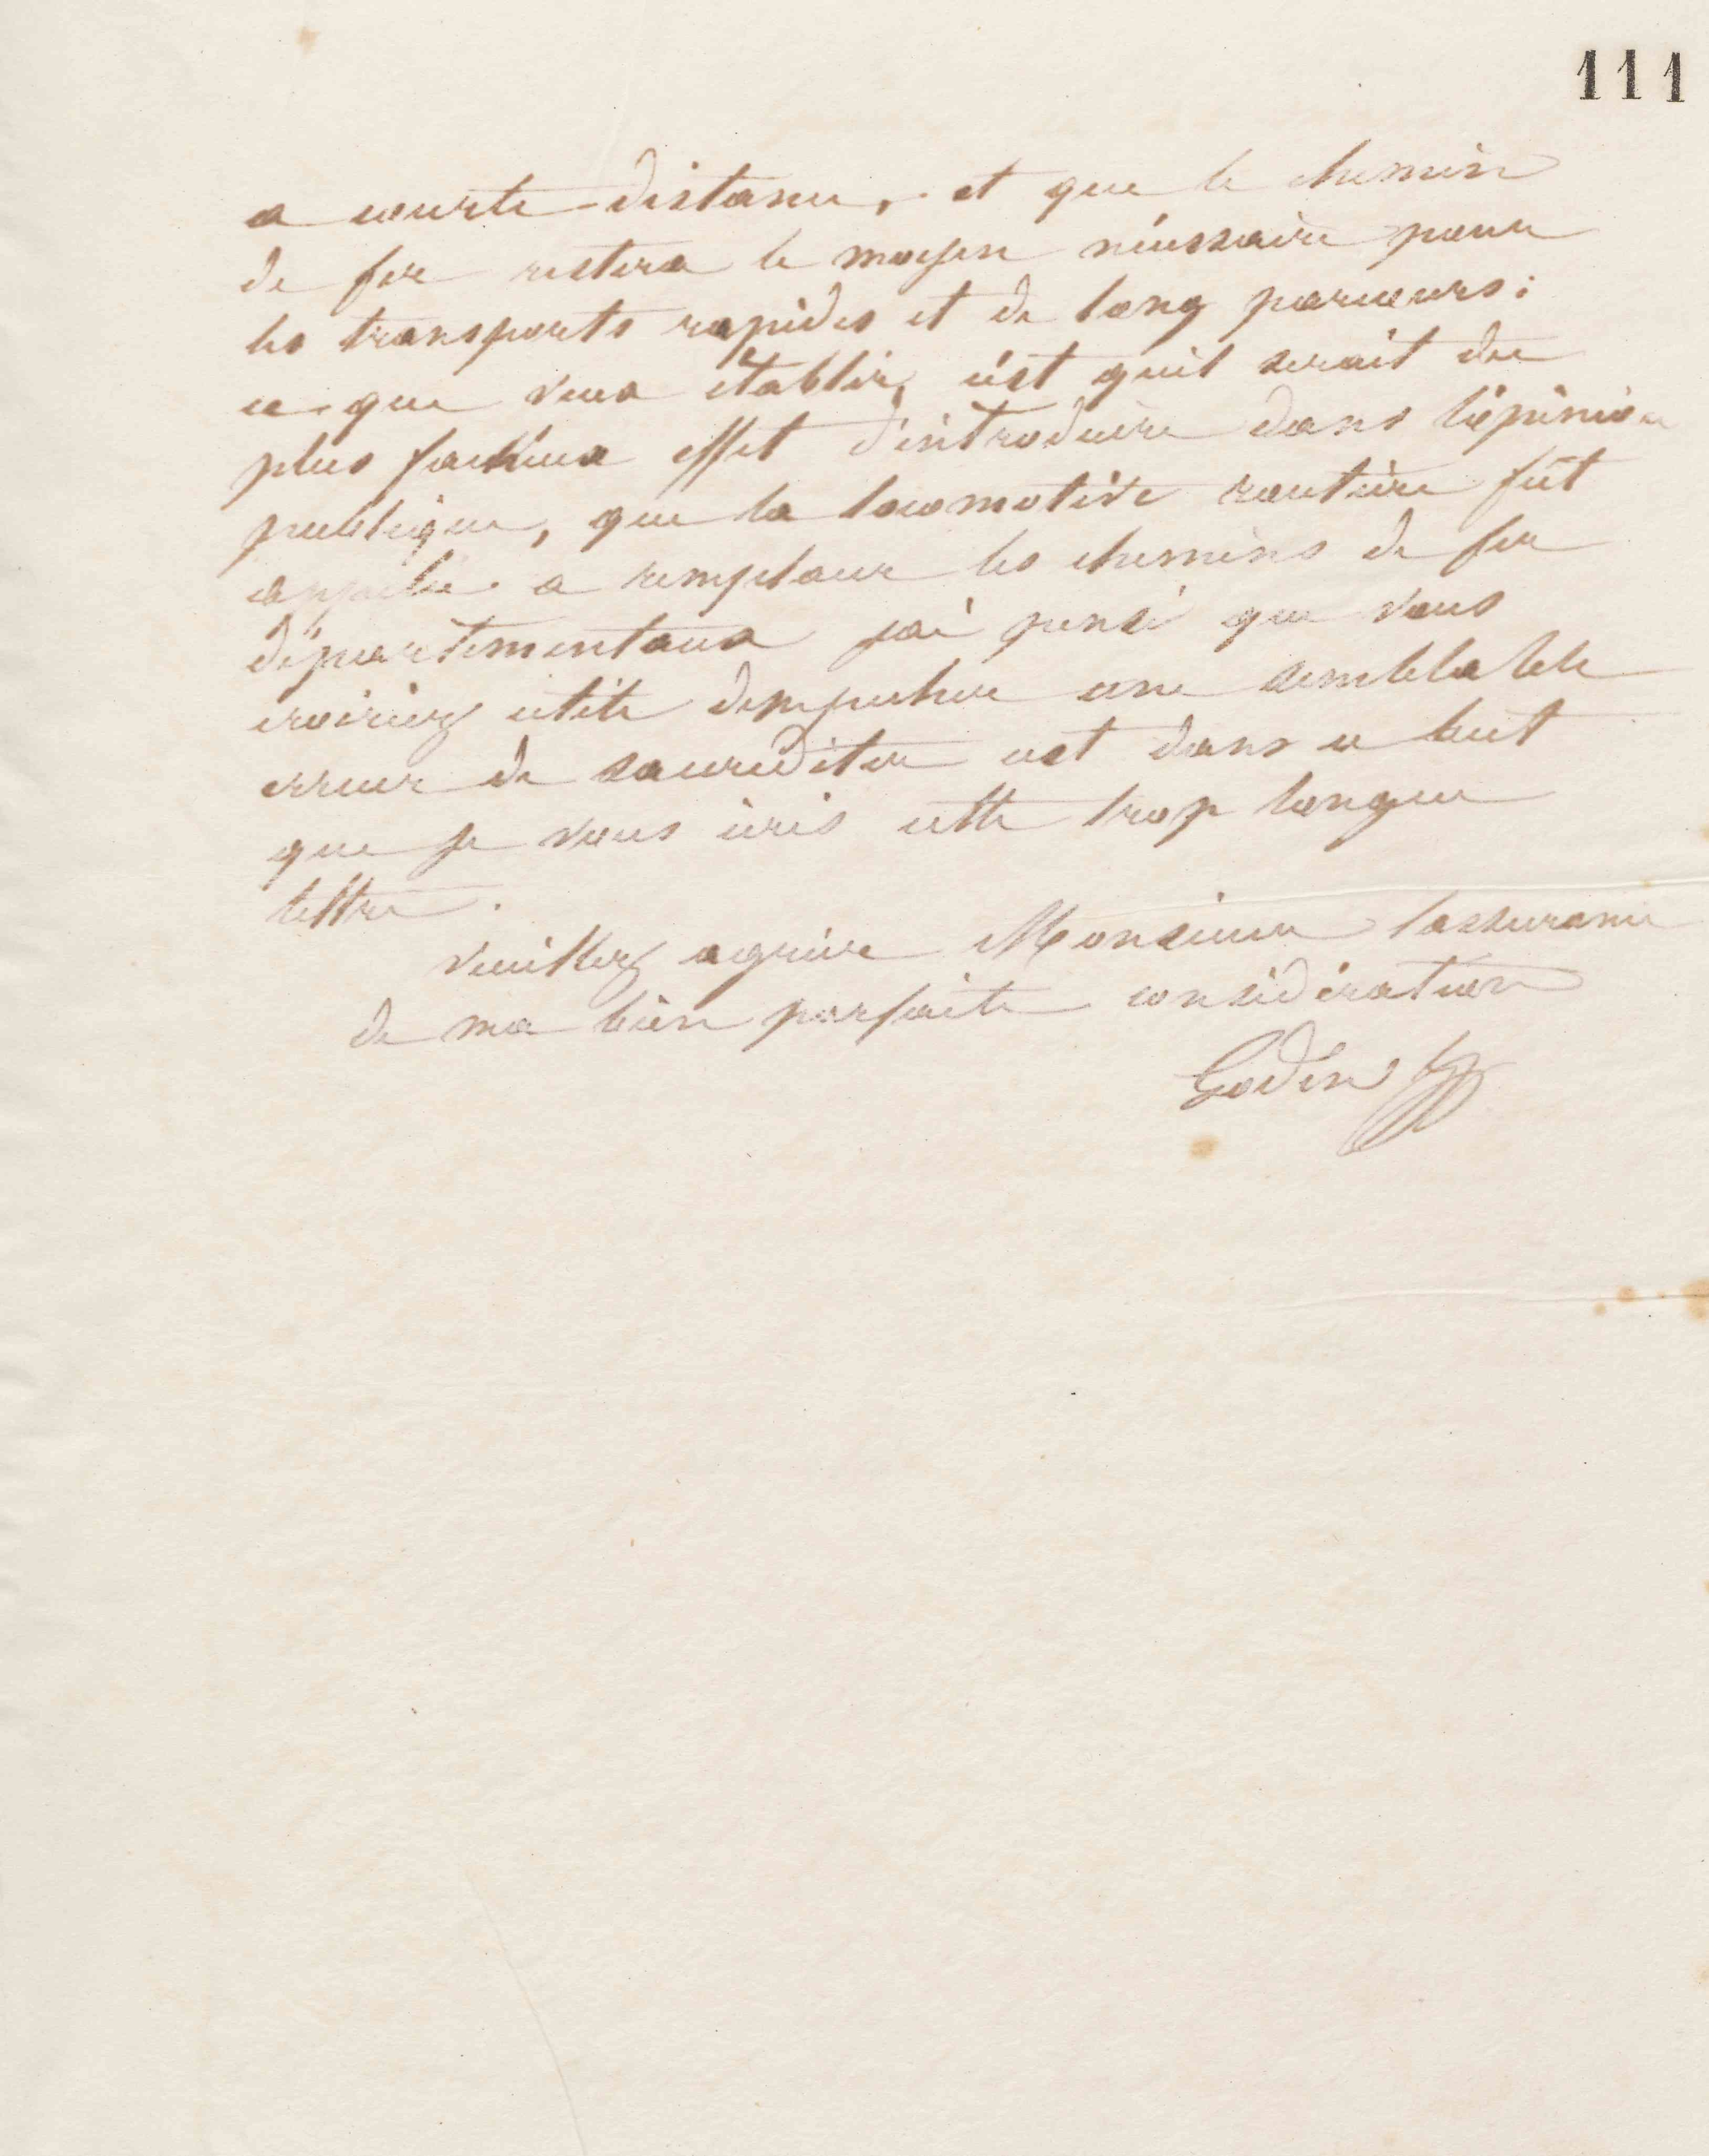 111
a courte distance, et que le chemin
de fer restera le moyen nécessaire pour
les transports rapides et de long parcours:
ce que veux établir, c'est quil serait du
plus facheux effet d'introduire dans l'opinion
publique, que la locomotive routière fût
appelée a remplacer les chemins de fer
départementaux jai pensé que vous
croiriez utile dempecher une semblable
erreur de saccréditer cest dans ce but
que je vous écris cette trop longue
lettre.
veuillez agréer Monsieur lassurance
de ma bien parfaite considération
Godin